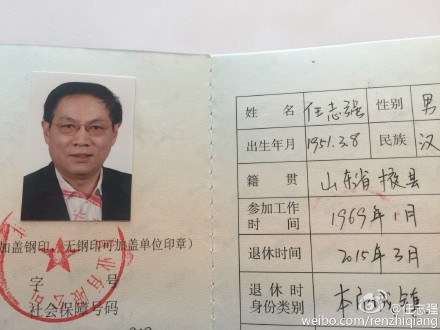 （加盖钢印，无钢印可加盖单位印章）
字 号
社会保障号码
姓 名 任志强 性别 男
出生年月 1951.3.8 民族 汉
籍 贯 山东省掖县
参加工作
时 间 1969年1月
退休时间 2015年3月
退 休 时
身份类别
@任志强
weibo.com/renzhiqiang